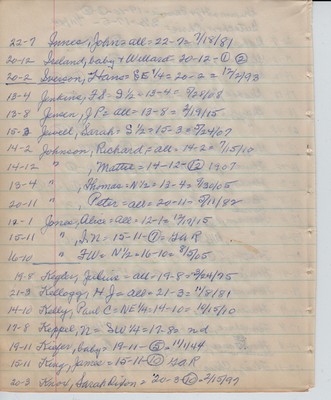 22-7 Innes, John = all = 22-7 = 7/18/81
20-12 Ireland, baby + Willard = 20-12 - ① ②
20-2 Iverson, Hans = SE 1/4 = 20-2 = 12/2/93
13-4 Jenkins, F S = S 1/2 = 13-4 =
13-8 Jensen, J P = all = 13-8 = 2/19/15
15-3 Jewell, Sarah = S 1/2 = 15-3 = 7/24/07
14-2 Johnson, Richard = all = 14-2 = 7/15/10
14-12 " , Mattie = 14-12 - ② 1907
13-4 " , Thomas = N 1/2 = 13-4 =
20-11 " , Peter = all = 20-11 = 5/11/82
12-1 Jones, Alice = all = 12-1 = 12/19/15
15-11 " , = 15-11 - = GAR
16-10 " , FW = N 1/2 = 16-10 = 8/5/05
19-8 = all = 19-8 =
21-3 Kellogg, H J = all = 21-3 = 11/8/81
14-10 Kelly, Paul C = NE 1/4 = 14-10 =
17-8 Keppel, N = SW 1/4 = 17-8 = nd
19-11 baby = 19-11 - = 11/1/44
15-11 King, James = 15-11 - ⑩ GAR
20-3 Knox, Sarah = 20-3 - = 2/15/97